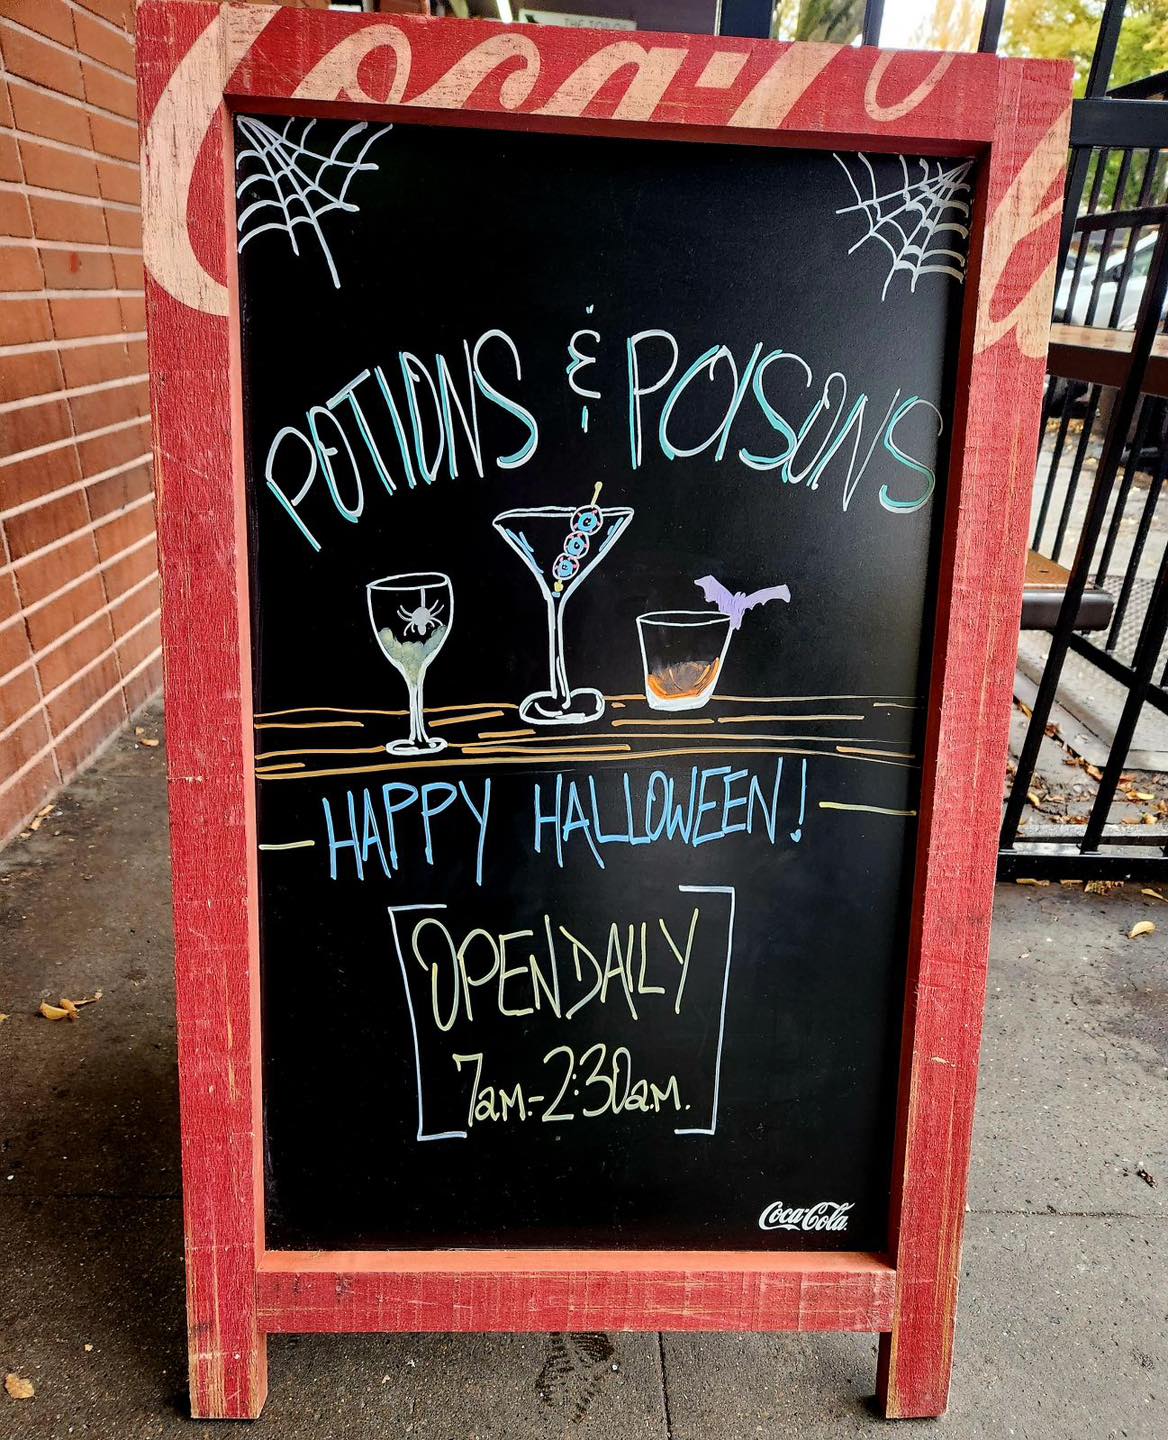 Coca-Cola
POTIONS & POISONS
HAPPY HALLOWEEN!
OPEN DAILY
7am.-2:30a.m.
Coca-Cola